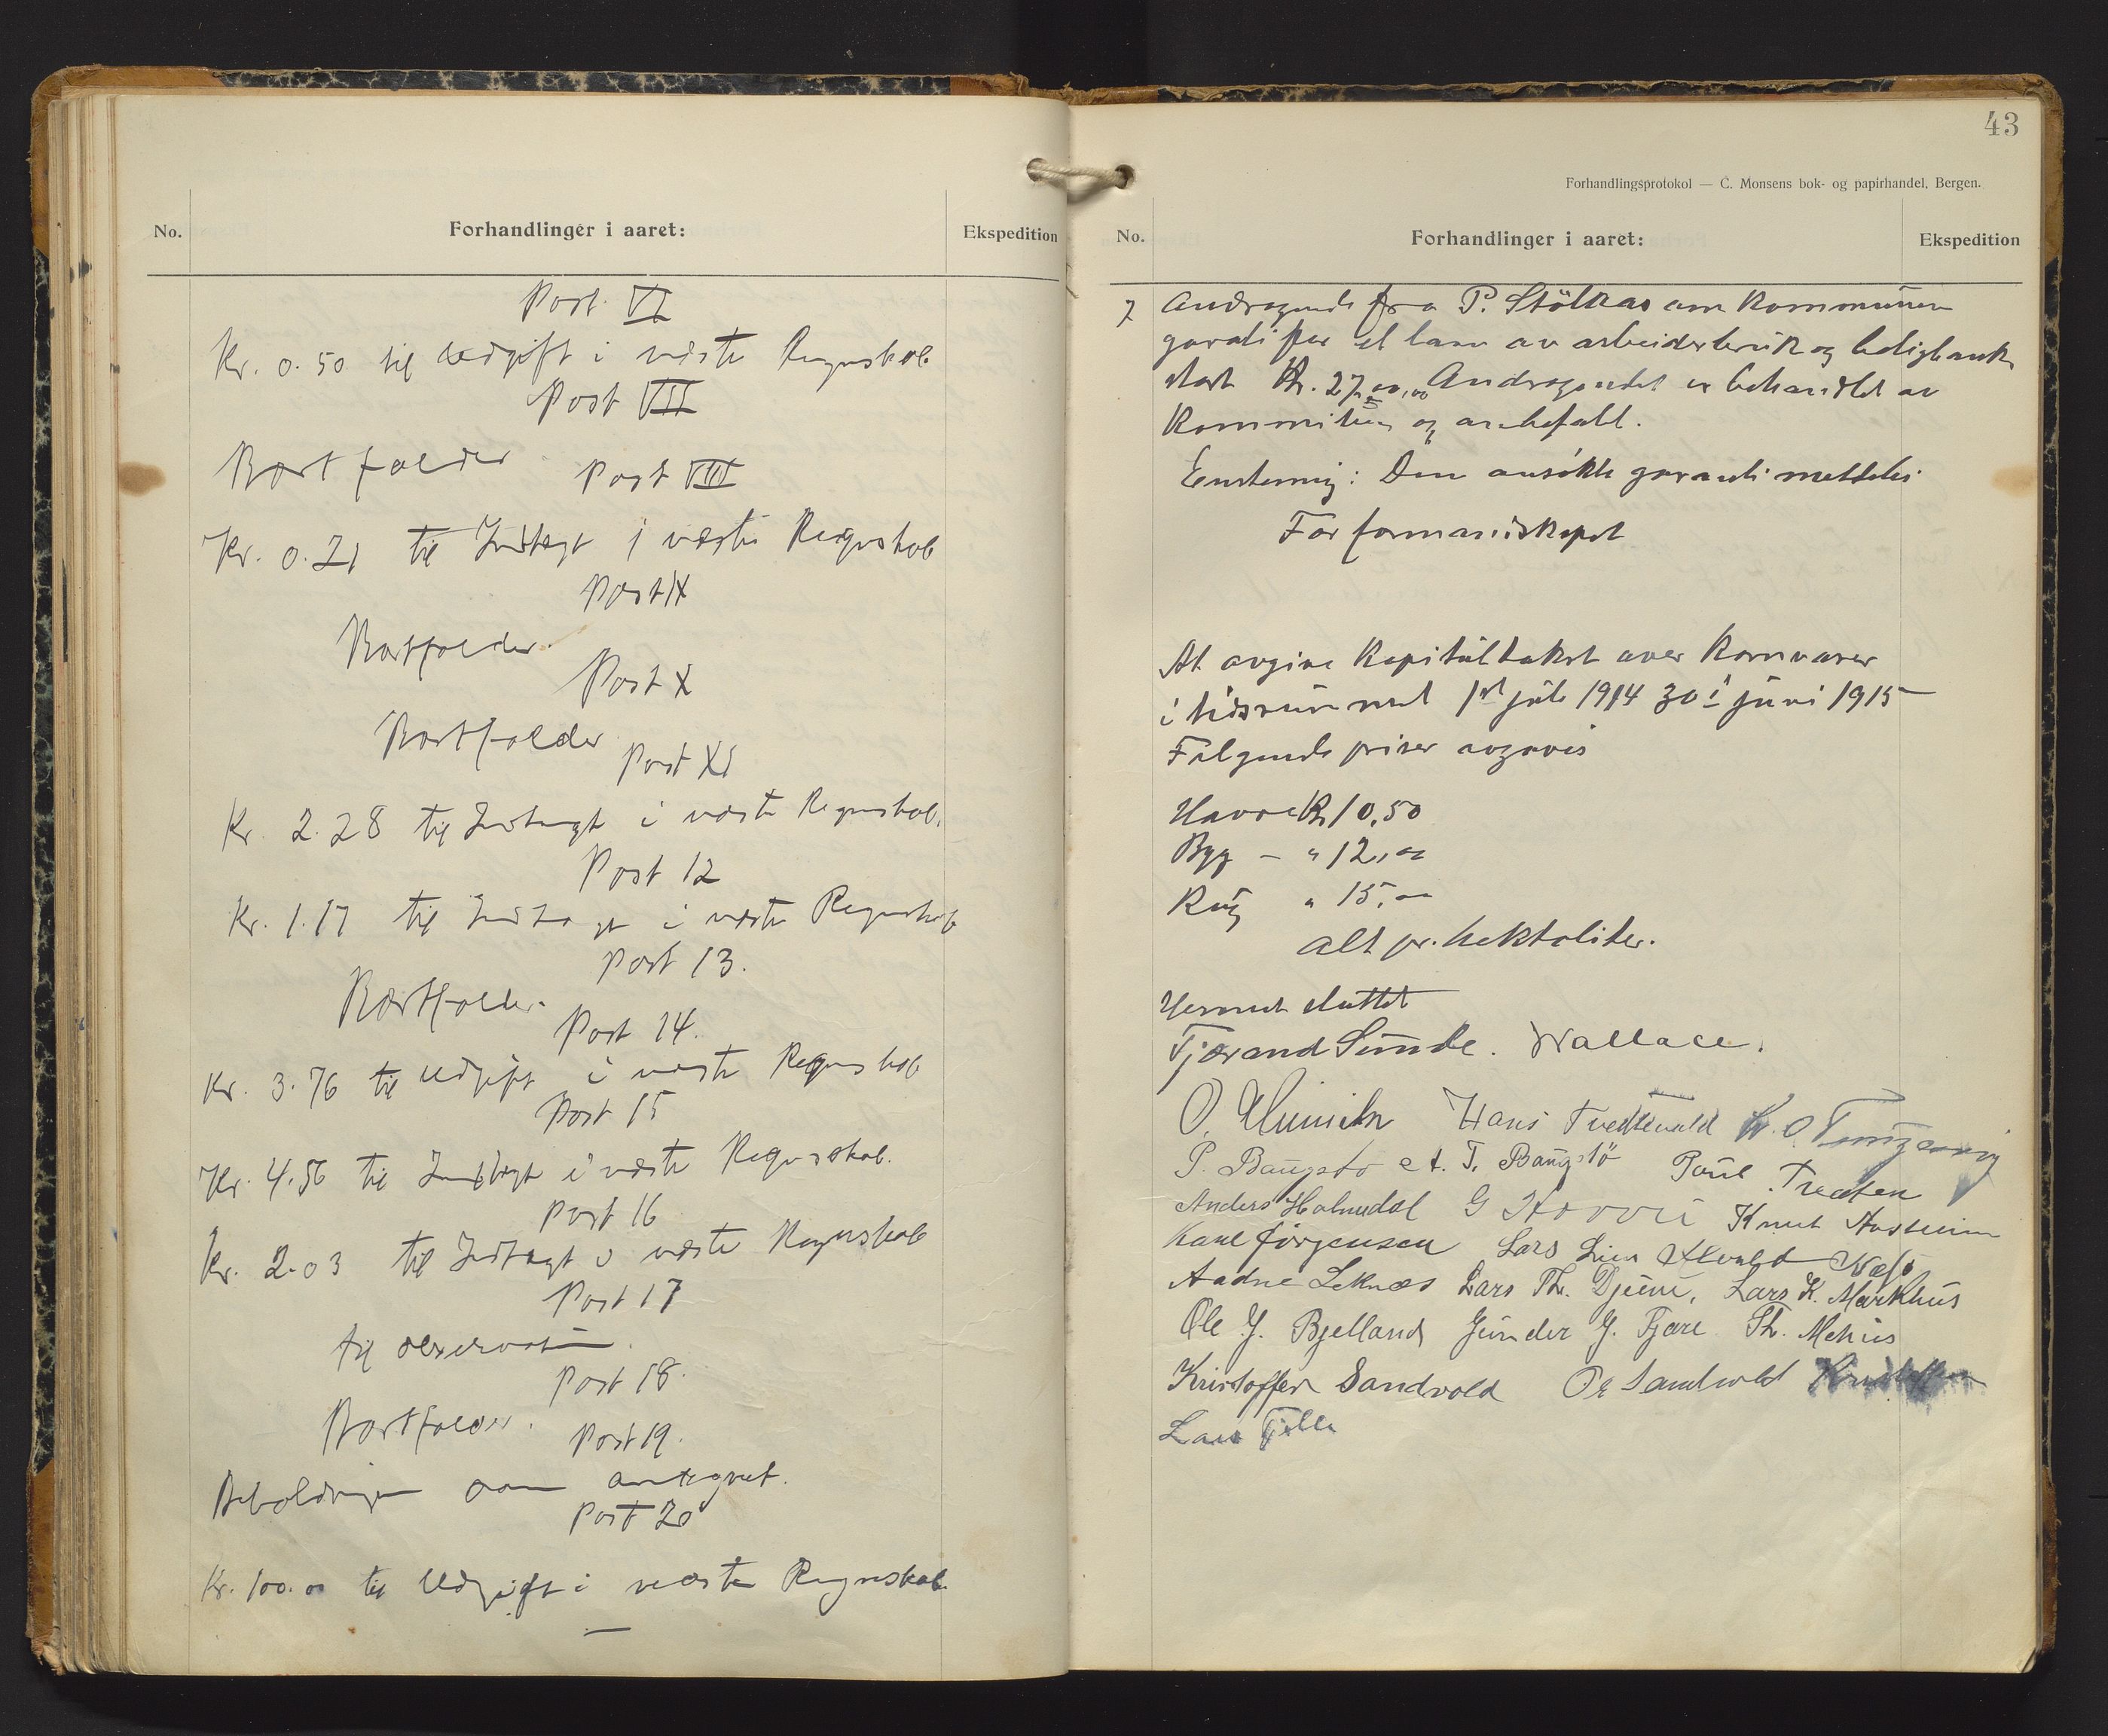 No.
Forhandlinger i aaret:
Ekspedition
Post VI
Kr. 0.50 til Udgift i næste Regnskab
Post VII
Bortfalder
Post VIII
Kr. 0.21 til Indtægt i næste Regnskab
Post IX
Bortfalder.
Post X
Bortfalder
Post XI
Kr. 2.28 til Indtægt i næste Regnskab.
Post 12
Kr. 1.17 til Indtægt i næste Regnskab
Post 13.
Bortfalder.
Post 14.
Kr. 3.76 til Udgift i næste Regnskab
Post 15
Kr. 4.56 til Indtægt i næste Regnskab.
Post 16
Kr. 2.03 til Indtægt i næste Regnskab
Post 17
til observation.
Post 18.
Bortfalder.
Post 19.
Beholdningen som antegnet.
Post 20
Kr. 100.00 til Udgift i næste Regnskab
43
Forhandlingsprotokol — C. Monsens bok- og papirhandel, Bergen.
No.
Forhandlinger i aaret:
Ekspedition
7 Andragende fra P. Stölkas om kommunen
garanti for et laan av arbeiderbruk og boligbank
stort Kr. Andragendet er behandlet av
Kommiteen og anbefalt.
Enstemmig: Den ansökte garanti meddeles
For formandskapet
At avgive Kapitültakst over Kornvarer
i tidsrümmet 1st jüli 1914 30t jüni 1915
Fölgende priser avgaves
Havre Kr 10,50
Byg – " 12,00
Rüg " 15,00
alt pr. hektoliter.
Hermed sluttet
Tjerand Sünde. Wallace.
O. Hans Tvedtenvald
P. Baugstö T. Baugstö Paul Tredten
Anders Holmedal G Knut Austrheim
Karl Jörgensen Lars Lien
Aadne Leknæs Lars Th. Djüve, Lars K. Markhüs
Ole J. Bjelland Günder G. Fjære Th. Mehüs
Kristoffer Sandvold Or Sandvold
Lars